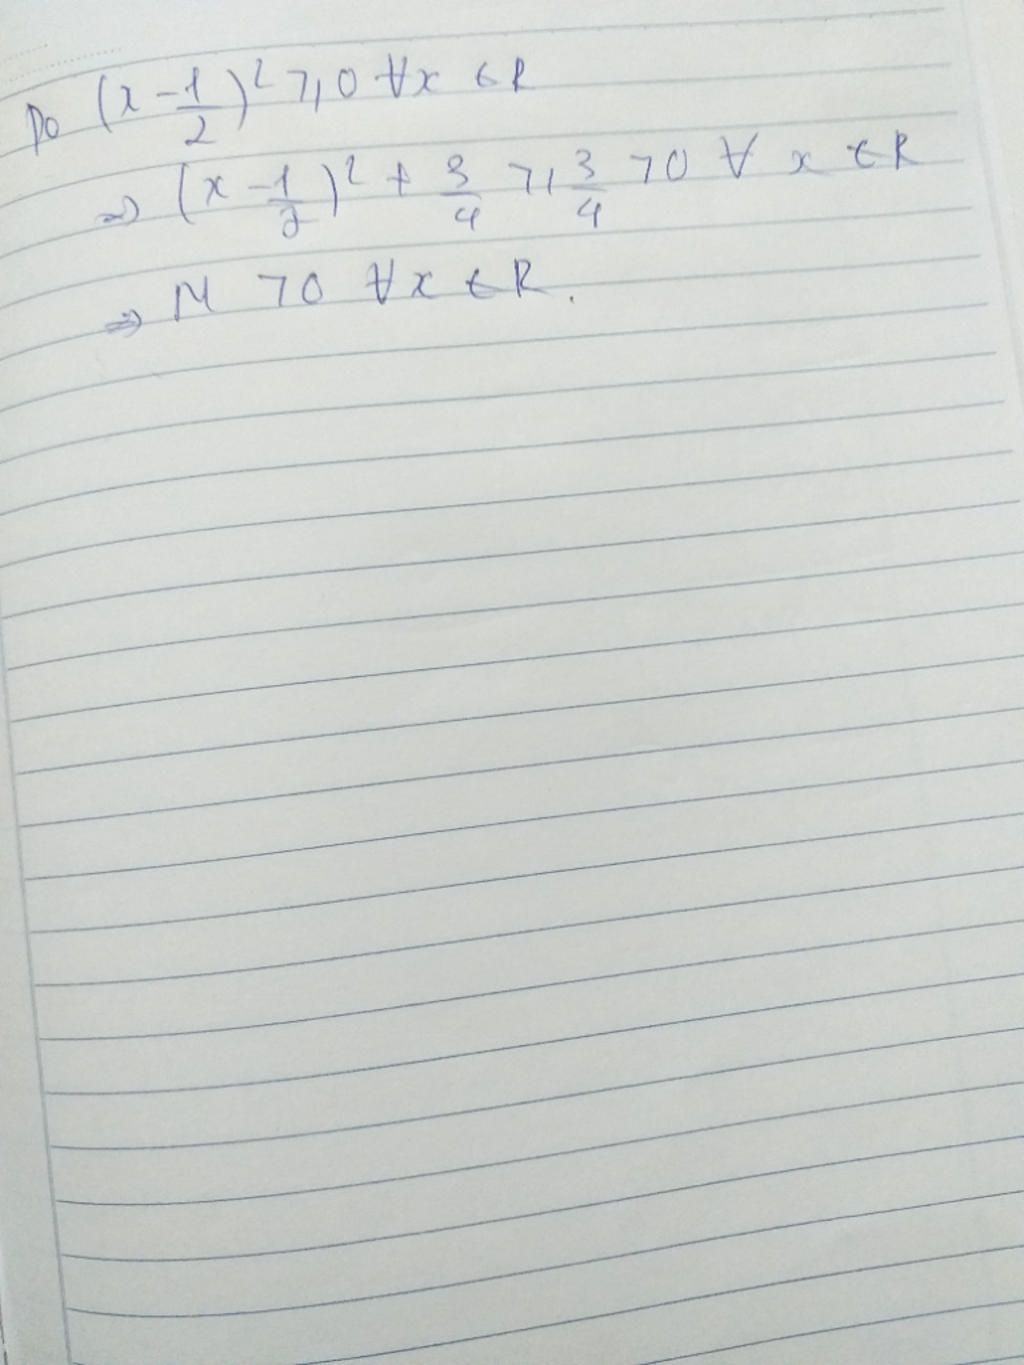 Do (x - 1/2)² ≥ 0 ∀x ∈ R
⇒ (x - 1/2)² + 3/4 ≥ 3/4 > 0 ∀ x ∈ R
⇒ M > 0 ∀x ∈ R.